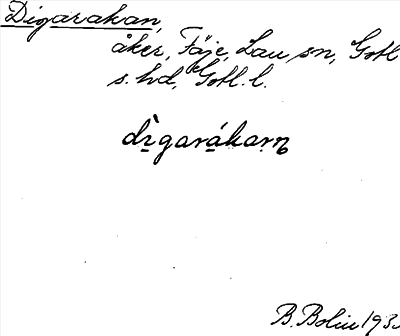 Digarakan,
åker, Fäje, Lau sn, Gotl
s. hd, Gotl. l.
dìgarákaṛn
B. Bolin 193